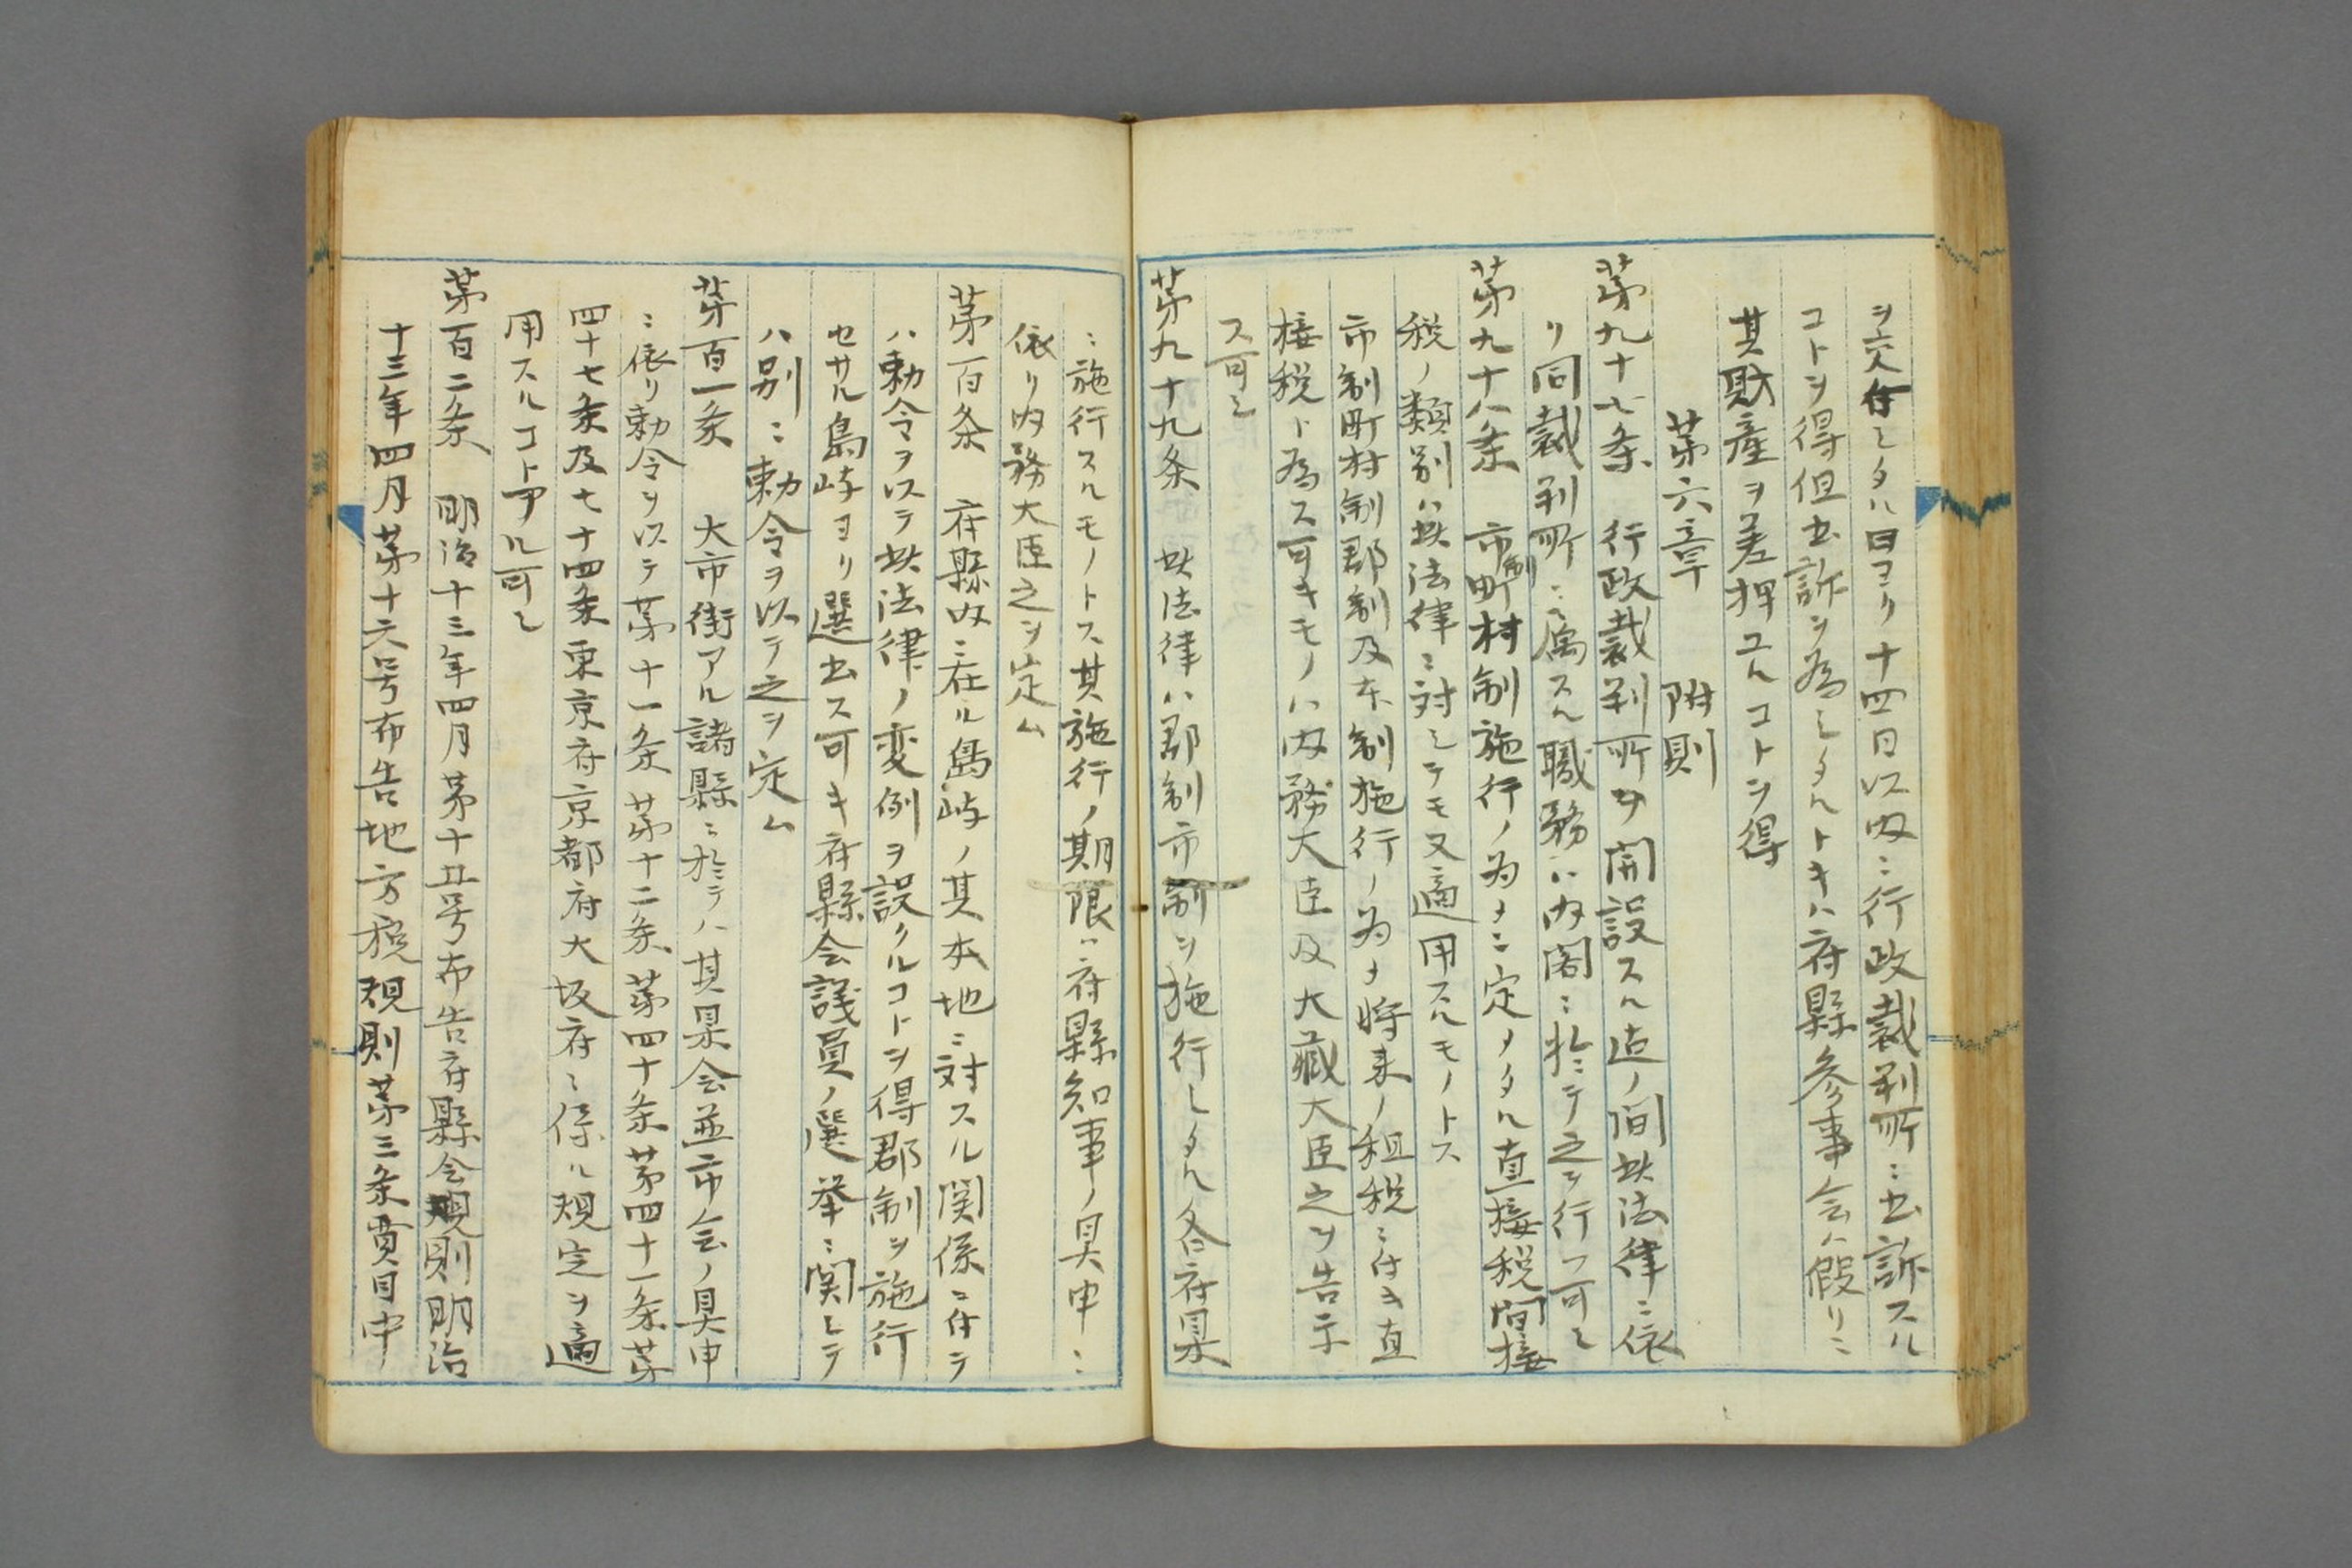 ヲ交付シタル日ヨリ十四日以内ニ行政裁判所ニ出訴スル
コトヲ得但出訴ヲ為シタルトキハ府縣参事会ハ假リニ
其財産ヲ差押ユルコトヲ得
第六章　附則
第九十七条　行政裁判所ヲ開設スル迄ノ間此法律ニ依
リ同裁判所ニ属スル職務ハ内閣ニ於テ之ヲ行フ可シ
第九十八条　市制町村制施行ノ為メニ定メタル直接税間接
税ノ類別ハ此法律ニ対シテモ又適用スルモノトス
市制町村制郡制及本制施行ノ為メ将来ノ租税ニ付キ直
接税ト為ス可キモノハ内務大臣及大蔵大臣之ヲ告示
ス可シ
第九十九条　此法律ハ郡制市制ヲ施行シタル各府県
ニ施行スルモノトス其施行ノ期限ハ府縣知事ノ具申ニ
依リ内務大臣之ヲ定ム
第百条　府縣内ニ在ル島嶼ノ其本地ニ対スル関係ニ付テ
ハ勅令ヲ以テ此法律ノ変例ヲ設クルコトヲ得郡制ヲ施行
セサル島嶼ヨリ選出ス可キ府縣会議員ノ選挙ニ関シテ
ハ別ニ勅令ヲ以テ之ヲ定ム
第百一条　大市街アル諸縣ニ於テハ其県会並市会ノ具申
ニ依リ勅令ヲ以テ第十一条第十二条第四十条第四十一条第
四十七条及七十四条東京府京都府大坂府ニ係ル規定ヲ適
用スルコトアル可シ
第百二条　明治十三年四月第十五号布告府縣会規則明治
十三年四月第十六号布告地方税規則第三条費目中